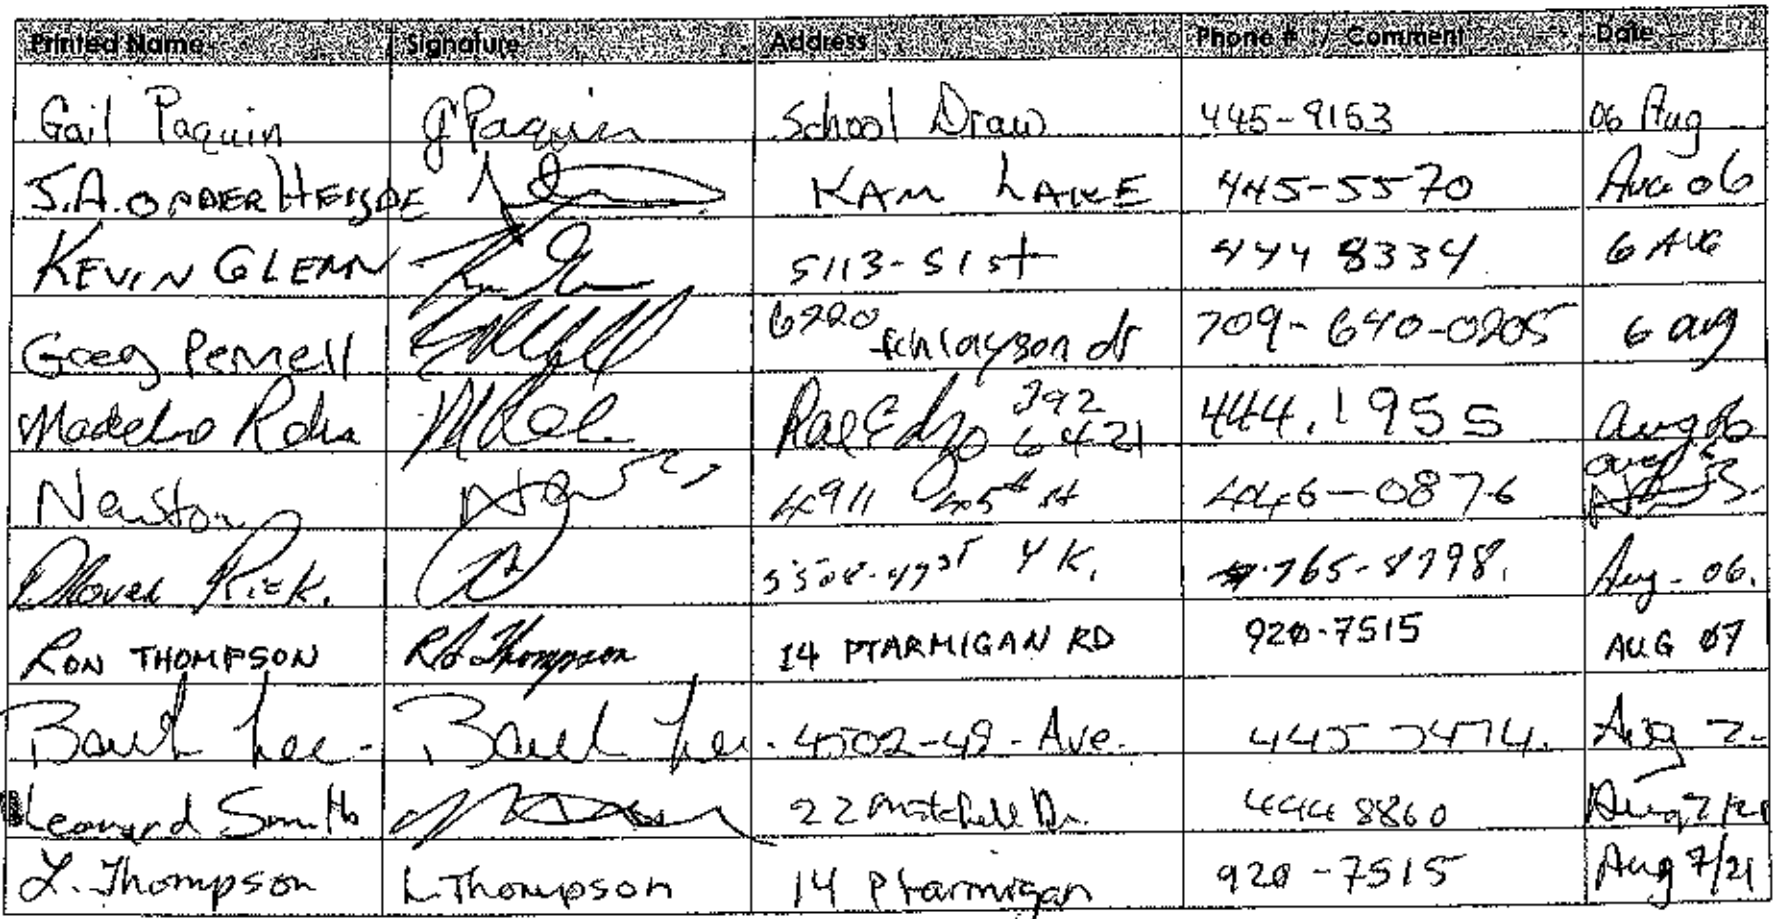 Printed Name Signature Address Phone # / Comment Date
Gail Paquin G Paquin School Draw 445-9153 06 Aug
J.A. OPDERHEIJDE KAM LAKE 445-5570 Aug 06
KEVIN GLENN 5113-51st 444 8334 6 AUG
Greg Pennell 6220 finlayson dr 709-640-0205 6 aug
Rae Edzo 392 6421 444.1955 Aug 06
Newton 4911 45th st 446-0876
Rick. YK. 765-8798. Aug-06.
RON THOMPSON R Thompson 14 PTARMIGAN RD 920-7515 AUG 07
Lee 4502-49-Ave. Aug 7-
Leonard Smith 22 Mitchell Dr. 444 8860 Aug 7/21
L. Thompson L Thompson 14 Ptarmigan 920-7515 Aug 7/21